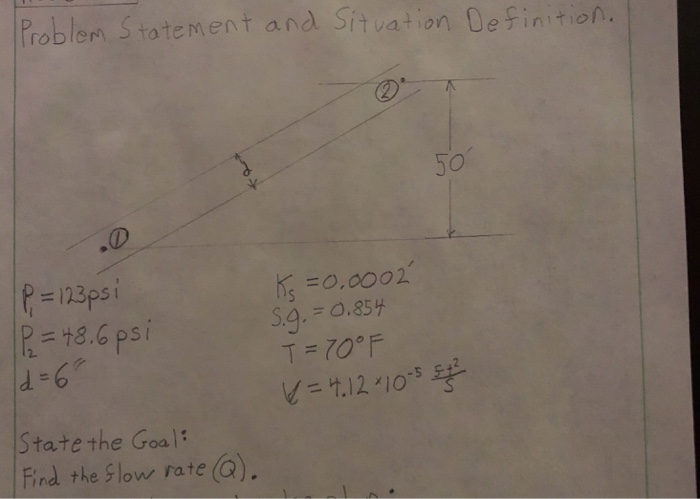 Problem Statement and Situation Definition.
②
d
50'
①
P₁ = 123 psi
Kₛ = 0.0002'
S.g. = 0.854
P₂ = 48.6 psi
T = 70°F
d = 6"
V = 4.12 × 10⁻⁵ ft²/s
State the Goal:
Find the flow rate (Q).